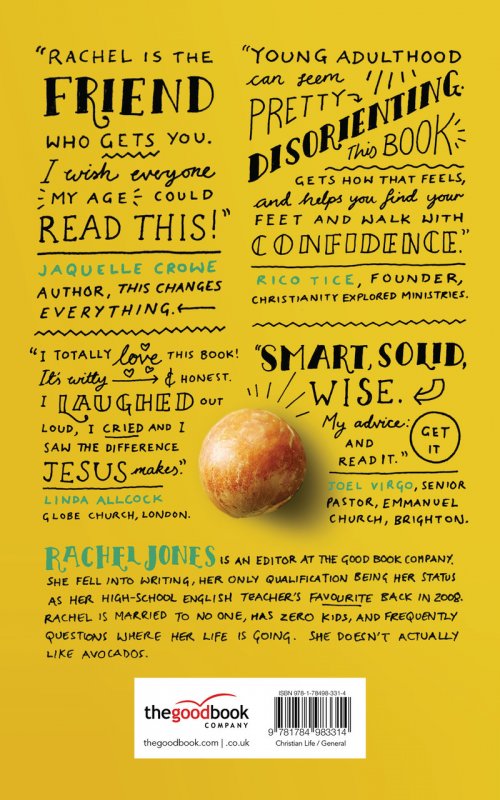 "RACHEL IS THE
FRIEND
WHO GETS YOU.
I wish everyone
MY AGE COULD
READ THIS!"
JAQUELLE CROWE
AUTHOR, THIS CHANGES
EVERYTHING.
"YOUNG ADULTHOOD
can seem
PRETTY
DISORIENTING.
This BOOK
GETS HOW THAT FEELS,
and helps you find your
FEET AND WALK WITH
CONFIDENCE."
RICO TICE, FOUNDER,
CHRISTIANITY EXPLORED MINISTRIES.
"I TOTALLY love THIS BOOK!
It's witty & HONEST.
I LAUGHED OUT
LOUD, I CRIED AND I
SAW THE DIFFERENCE
JESUS makes."
LINDA ALLCOCK
GLOBE CHURCH, LONDON.
"SMART, SOLID,
WISE.
My advice:
GET
IT
AND
READ IT."
JOEL VIRGO, SENIOR
PASTOR, EMMANUEL
CHURCH, BRIGHTON.
RACHEL JONES IS AN EDITOR AT THE GOOD BOOK COMPANY.
SHE FELL INTO WRITING, HER ONLY QUALIFICATION BEING HER STATUS
AS HER HIGH-SCHOOL ENGLISH TEACHER'S FAVOURITE BACK IN 2008.
RACHEL IS MARRIED TO NO ONE, HAS ZERO KIDS, AND FREQUENTLY
QUESTIONS WHERE HER LIFE IS GOING. SHE DOESN'T ACTUALLY
LIKE AVOCADOS.
thegoodbook
COMPANY
thegoodbook.com | .co.uk
ISBN 978-1-78498-331-4
9 781784 983314
Christian Life / General